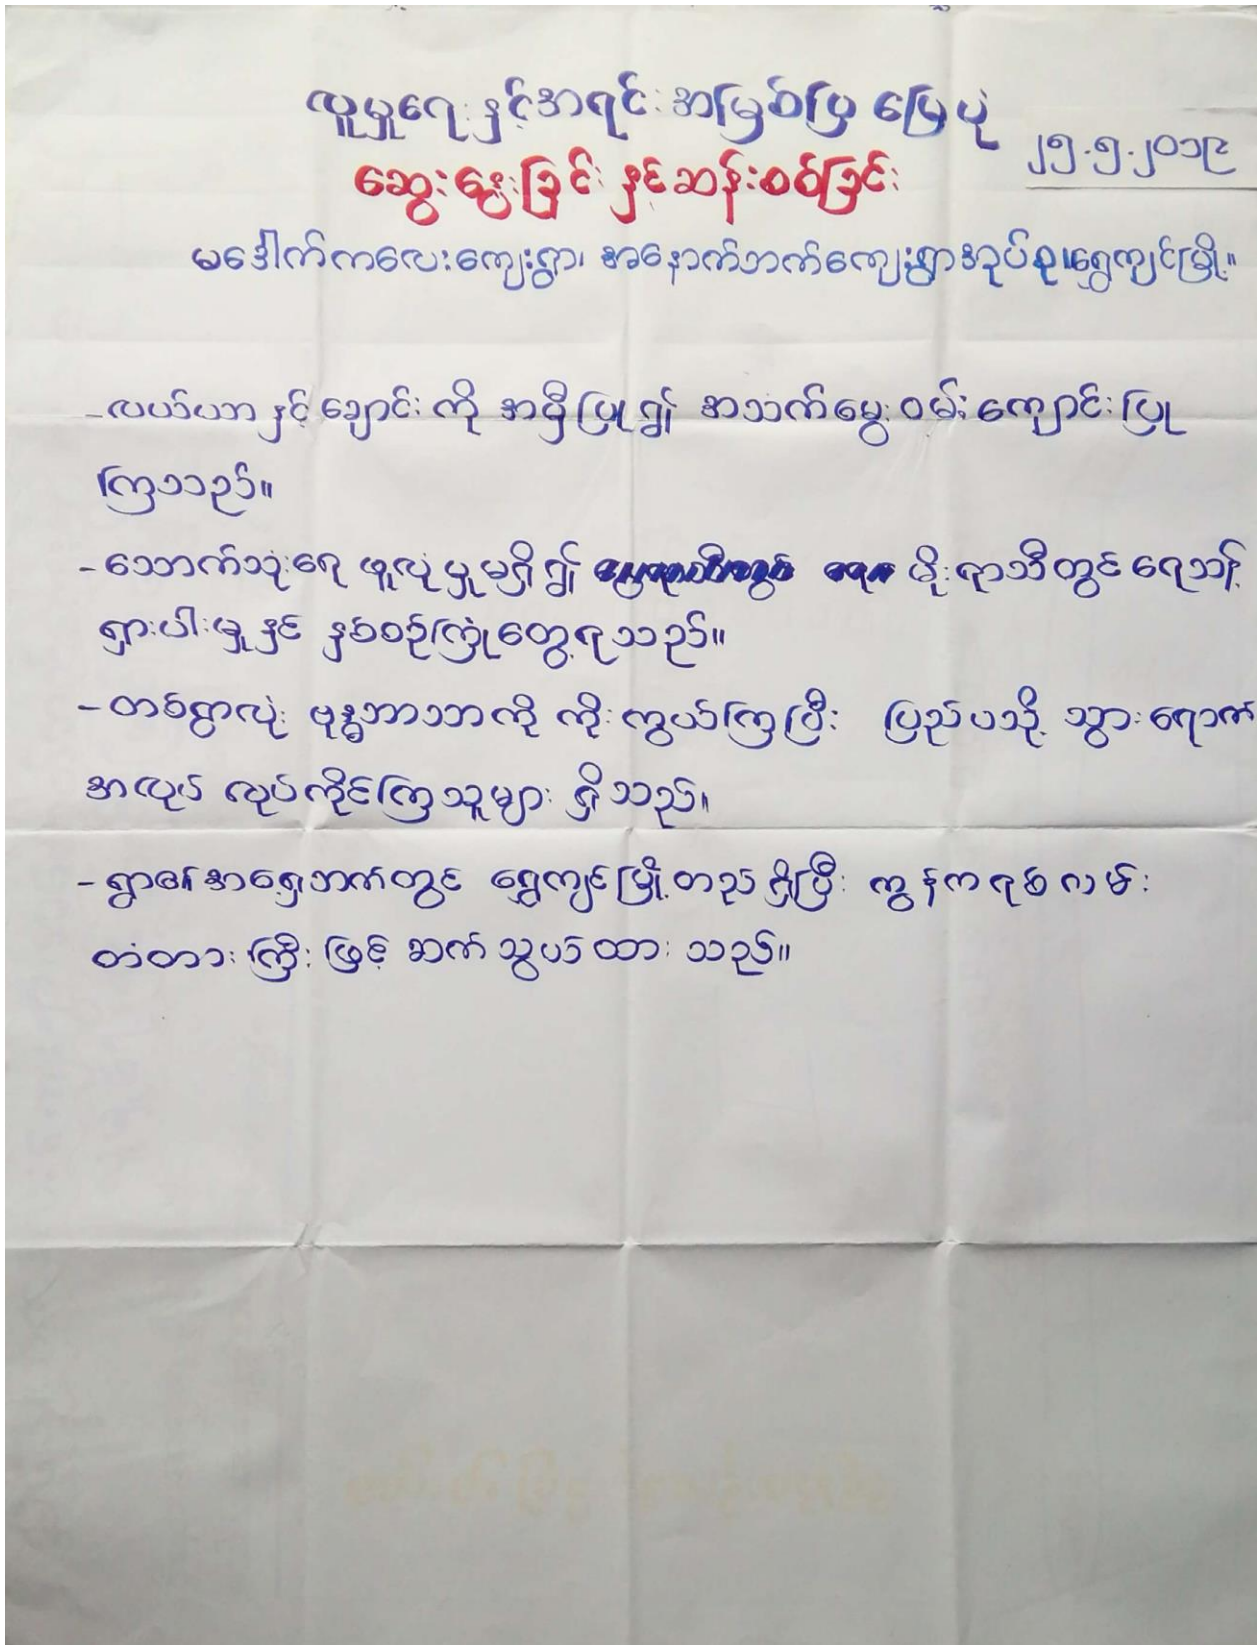 လူမှုရေး နှင့်အရင်းအမြစ်ပြ မြေပုံ
၂၅.၅.၂၀၁၉
ဆွေးနွေးခြင်း နှင့်ဆန်းစစ်ခြင်း
မဒေါက်ကလေးကျေးရွာ၊ အနောက်ဘက်ကျေးရွာအုပ်စု၊ရွှေကျင်မြို့။
-လယ်ယာ နှင့် ချောင်း ကို အမှီပြု၍ အသက်မွေးဝမ်းကျောင်းပြု
ကြသည်။
-သောက်သုံးရေ ဖူလုံမှုမရှိ၍ မိုးရာသီတွင် ရေသန့်
ရှားပါးမှုနှင့် နှစ်စဉ်ကြုံတွေ့ရသည်။
-တစ်ရွာလုံး ဗုဒ္ဓဘာသာကို ကိုးကွယ်ကြပြီး ပြည်ပသို့ သွားရောက်
အလုပ် လုပ်ကိုင်ကြသူများ ရှိသည်။
-ရွာ၏အရှေ့ဘက်တွင် ရွှေကျင်မြို့တည်ရှိပြီး ကွန်ကရစ်
တံတားကြီးဖြင့် ဆက်သွယ်ထားသည်။